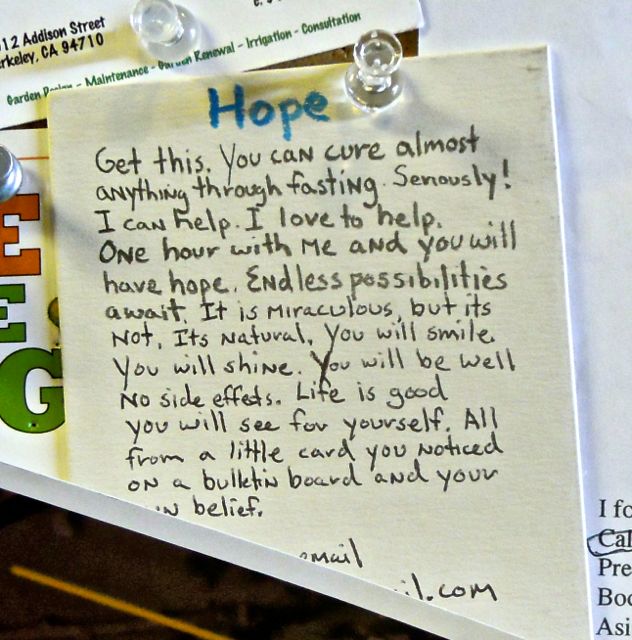 12 Addison Street
CA 94710
Garden Design - Maintenance - Garden Renewal - Irrigation - Consultation
Hope
Get this. You can cure almost
anything through fasting. Seriously!
I can help. I love to help.
One hour with me and you will
have hope. Endless possibilities
await. It is miraculous, but its
not. Its natural. You will smile.
You will shine. You will be well
No side effets. Life is good
you will see for yourself. All
from a little card you noticed
on a bulletin board and your
belief.
email
.com
E
E
G
I fo
Cal
Pre
Boo
Asi